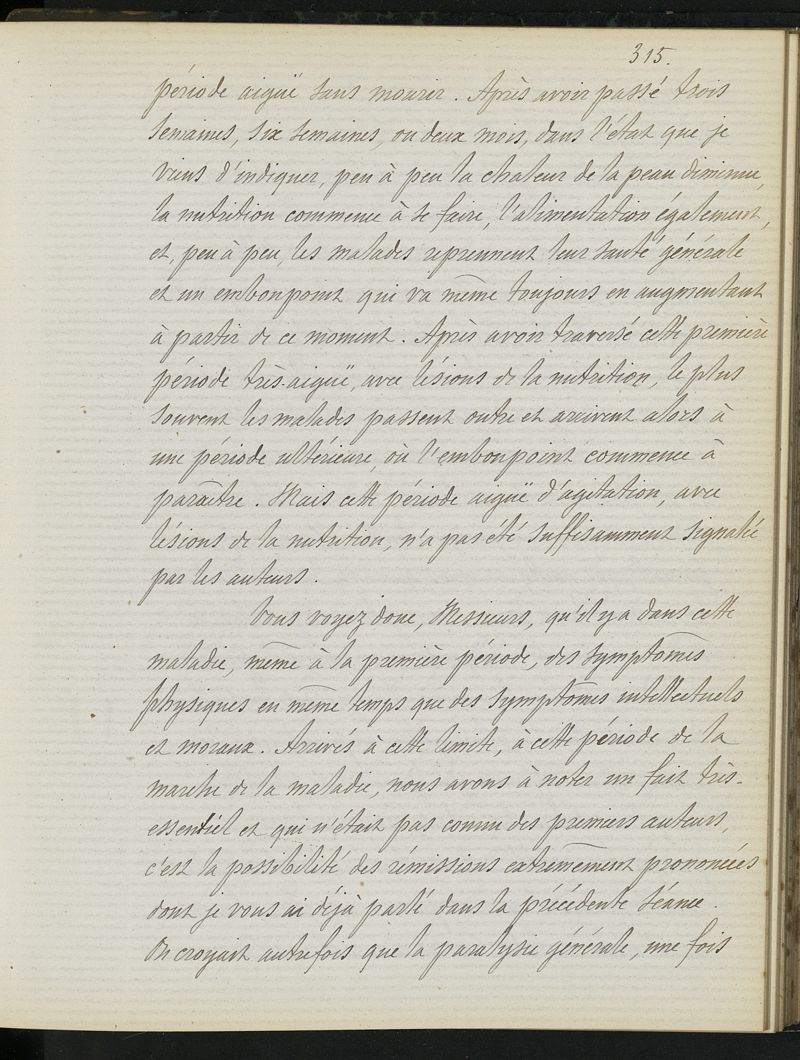 315.
période aiguë sans mourir. Après avoir passé trois
semaines, six semaines, ou deux mois, dans l'état que je
viens d'indiquer, peu à peu la chaleur de la peau diminue,
la nutrition commence à se faire, l'alimentation également,
et, peu à peu, les malades reprennent leur santé générale
et un embonpoint qui va même toujours en augmentant
à partir de ce moment. Après avoir traversé cette première
période très-aiguë, avec lésions de la nutrition, le plus
souvent les malades passent outre et arrivent alors à
une période ultérieure, où l'embonpoint commence à
paraître. Mais cette période aiguë d'agitation, avec
lésions de la nutrition, n'a pas été suffisamment signalée
par les auteurs.
Vous voyez donc, Messieurs, qu'il y a dans cette
maladie, même à la première période, des symptômes
physiques en même temps que des symptômes intellectuels
et moraux. Arrivés à cette limite, à cette période de la
marche de la maladie, nous avons à noter un fait très-
essentiel et qui n'était pas connu des premiers auteurs,
c'est la possibilité des rémissions extrêmement prononcées
dont je vous ai déjà parlé dans la précédente séance.
On croyait autrefois que la paralysie générale, une fois